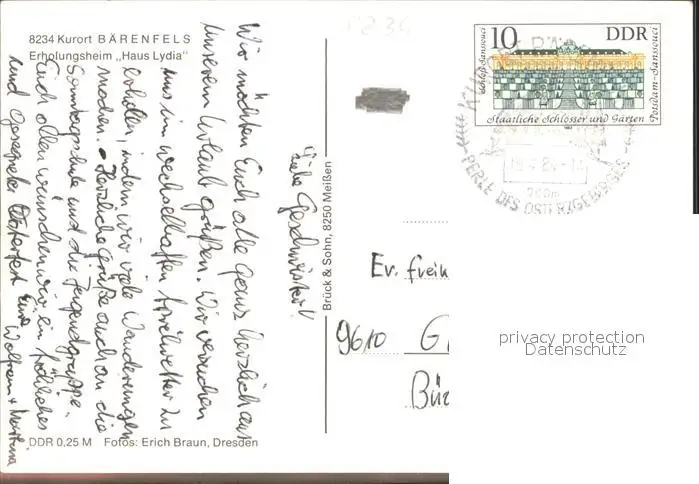 8234 Kurort BÄRENFELS
Erholungsheim „Haus Lydia"
Liebe Geschwister!
Wir möchten Euch alle ganz herzlich aus
unserem Urlaub grüßen. Wir versuchen
uns im wechselhaften Aprilwetter zu
erholen, indem wir viele Wanderungen
machen. Herzliche Grüße auch an die
Sonntagsschule und die Jugendgruppe.
Euch allen wünschen wir ein fröhliches
und gesegnetes Osterfest Eure Wolfram + Martina
DDR 0,25 M Fotos: Erich Braun, Dresden
Brück & Sohn, 8250 Meißen
10 DDR
Schloß Sanssouci
Potsdam-Sanssouci
Staatliche Schlösser und Gärten
PERLE DES OSTERZGEBIRGES
Ev. freik
9610 G
privacy protection
Datenschutz